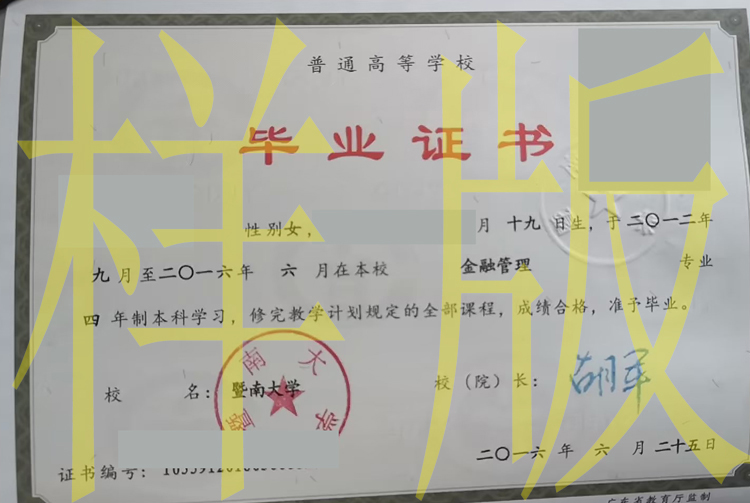 样版
普通高等学校
毕业证书
性别女， 月 十九 日生，于 二〇一二年
九 月至二〇一六年 六 月在本校 金融管理 专业
四 年制本科学习，修完教学计划规定的全部课程，成绩合格，准予毕业。
校 名：暨南大学 校（院）长：胡军
暨南大学
二〇一六 年 六 月 二十五日
证书编号：
广东省教育厅监制